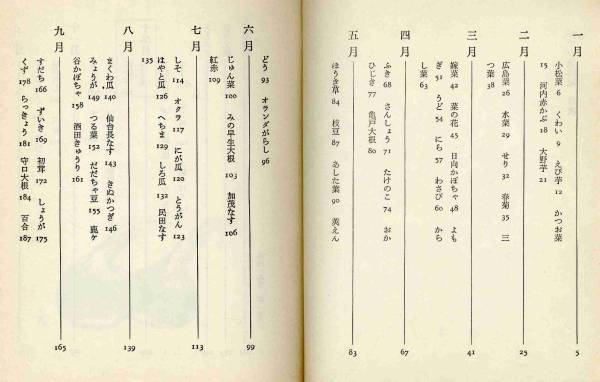 一月 5
小松菜 6 くわい 9 えび芋 12 かつお菜
15 河内赤かぶ 18 大野芋 21
二月 25
広島菜 26 水菜 29 せり 32 春菊 35 三
つ葉 38
三月 41
嫁菜 42 菜の花 45 日向かぼちゃ 48 よも
ぎ 51 うど 54 にら 57 わさび 60 から
し菜 63
四月 67
ふき 68 さんしょう 71 たけのこ 74 おか
ひじき 77 亀戸大根 80
五月 83
ほうき草 84 枝豆 87 あした葉 90 莢えん
どう 93 オランダがらし 96
六月 99
じゅん菜 100 みの早生大根 103 加茂なす 106
紅赤 109
七月 113
しそ 114 オクラ 117 にが瓜 120 とうがん 123
はやと瓜 126 へちま 129 しろ瓜 132 民田なす
135
八月 139
まくわ瓜 140 仙台長なす 143 きぬかつぎ 146
みょうが 149 つる菜 152 だだちゃ豆 155 鹿ヶ
谷かぼちゃ 158 酒田きゅうり 161
九月 165
すだち 166 ずいき 169 初茸 172 しょうが 175
くず 178 らっきょう 181 守口大根 184 百合 187